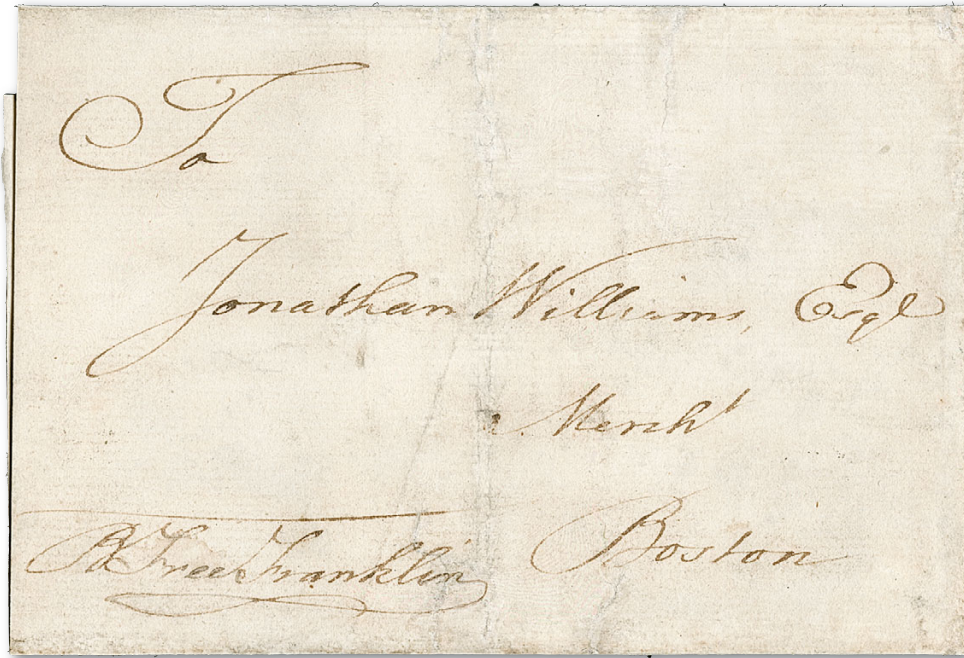 To
Jonathan Williams, Esqr
Mercht
Boston
B Free Franklin